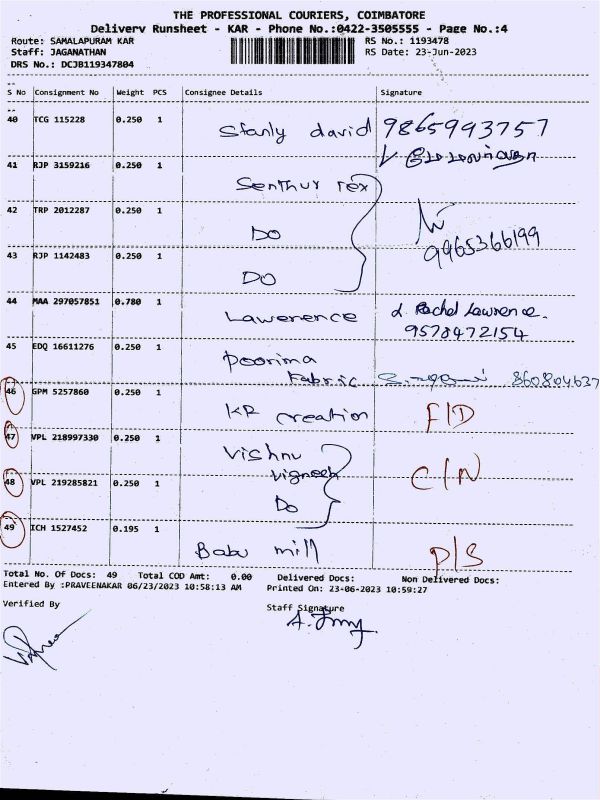 THE PROFESSIONAL COURIERS, COIMBATORE
Delivery Runsheet - KAR - Phone No.:0422-3505555 - Page No.:4
Route: SAMALAPURAM KAR
RS No.: 1193478
Staff: JAGANATHAN
RS Date: 23-Jun-2023
DRS No.: DCJB119347804
S No Consignment No Weight PCS Consignee Details Signature
40 TCG 115228 0.250 1 Stanly david 9865993757
41 RJP 3159216 0.250 1 Senthur rex
42 TRP 2012287 0.250 1 DO 9965366199
43 RJP 1142483 0.250 1 DO
44 MAA 297057851 0.780 1 Lawerence L. Rachel Lawrence.
9578472154
45 EDQ 16611276 0.250 1 Poorima
Fabric 860804637
46 GPM 5257860 0.250 1 KR creation F/D
47 VPL 218997330 0.250 1 Vishnu
Vignesh C/N
48 VPL 219285821 0.250 1 DO
49 ICH 1527452 0.195 1 Babu mill P/S
Total No. Of Docs: 49 Total COD Amt: 0.00 Delivered Docs: Non Delivered Docs:
Entered By :PRAVEENAKAR 06/23/2023 10:58:13 AM Printed On: 23-06-2023 10:59:27
Verified By
Staff Signature